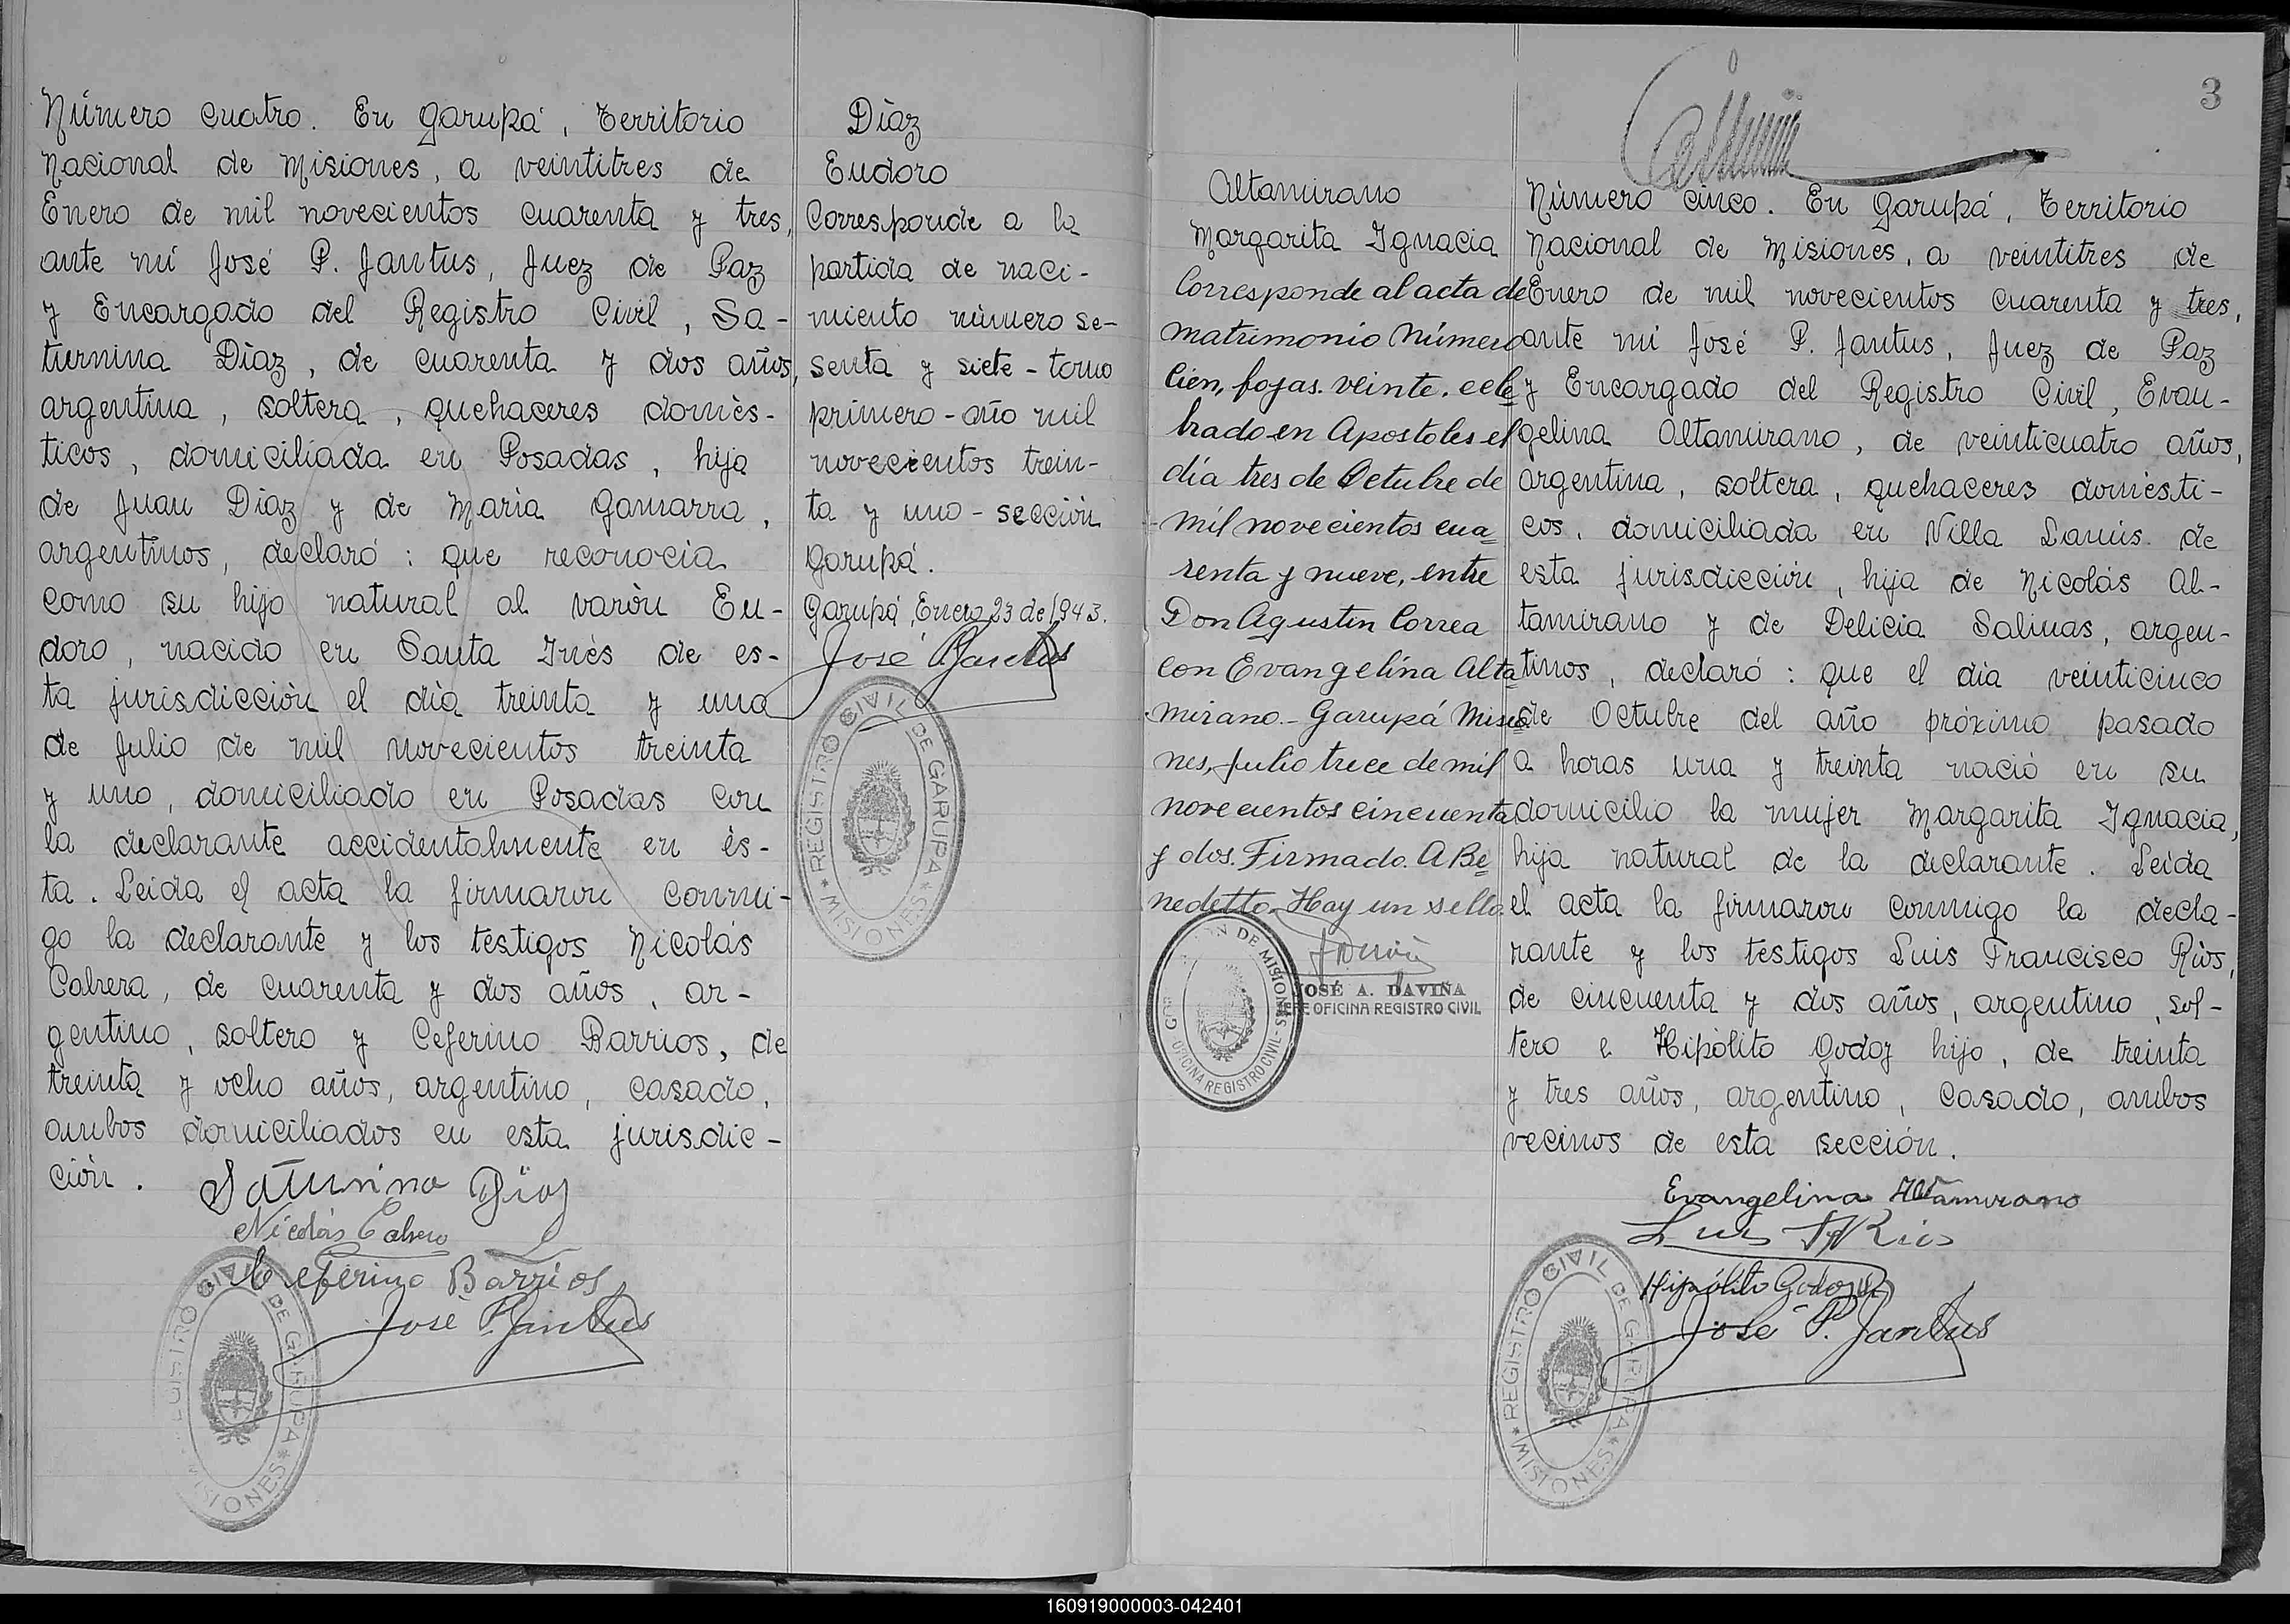 Número cuatro. En Garupá, Territorio
Nacional de Misiones, a veintitres de
Enero de mil novecientos cuarenta y tres,
ante mí José P. Jantus, Juez de Paz
y Encargado del Registro Civil, Sa-
turnina Dìaz, de cuarenta y dos años,
argentina, soltera, quehaceres domès-
ticos, domiciliada en Posadas, hija
de Juan Dìaz y de Marìa Gamarra,
argentinos, declaró: que reconocia
como su hijo natural al varòn Eu-
doro, nacido en Santa Inès de es-
ta jurisdicciòn el dìa treinta y uno
de Julio de mil novecientos treinta
y uno, domiciliado en Posadas con
la declarante accidentalmente en ès-
ta. Leida el acta la firmaron conmi-
go la declarante y los testigos Nicolás
Cabrera, de cuarenta y dos años, ar-
gentino, soltero y Ceferino Barrios, de
treinta y ocho años, argentino, casado,
ambos domiciliados en esta jurisdic-
ciòn.
Saturnina Diaz
Nicolás Cabrera
Ceferino Barrios
José P. Jantus
REGISTRO CIVIL DE GARUPA
* MISIONES *
Dìaz
Eudoro
Corresponde a la
partida de naci-
miento número se-
senta y siete - tomo
primero - año mil
novecientos trein-
ta y uno - secciòn
Garupá.
Garupá, Enero 23 de 1943.
José P. Jantus
REGISTRO CIVIL DE GARUPA
* MISIONES *
3
Altamirano
Margarita Ignacia
Corresponde al acta de
matrimonio Número
Cien, fojas veinte, cele
brado en Apostoles el
día tres de Octubre de
mil novecientos cua=
renta y nueve, entre
Don Agustín Correa
con Evangelina Alta=
mirano.- Garupá Misio=
nes, Julio trece de mil
novecientos cincuenta
y dos. Firmado. A Be=
nedetto. Hay un sello.
JOSÉ A. DAVIÑA
JEFE OFICINA REGISTRO CIVIL
DE MISIONES
OFICINA REGISTRO CIVIL
Número cinco. En Garupá, Territorio
Nacional de Misiones, a veintitres de
Enero de mil novecientos cuarenta y tres,
ante mí José P. Jantus, Juez de Paz
y Encargado del Registro Civil, Evan-
gelina Altamirano, de veinticuatro años,
argentina, soltera, quehaceres domèsti-
cos, domiciliada en Villa Lanús de
esta jurisdicciòn, hija de Nicolás Al-
tamirano y de Delicia Salinas, argen-
tinos, declaró: que el dìa veinticinco
de Octubre del año próximo pasado
a horas una y treinta nació en su
domicilio la mujer Margarita Ignacia,
hija natural de la declarante. Leida
el acta la firmaron conmigo la decla-
rante y los testigos Luis Francisco Rìos,
de cincuenta y dos años, argentino, sol-
tero e Hipòlito Godoy hijo, de treinta
y tres años, argentino, casado, ambos
vecinos de esta secciòn.
Evangelina Altamirano
Luis F Rios
Hipólito Godoy
José P. Jantus
REGISTRO CIVIL DE GARUPA
* MISIONES *
160919000003-042401